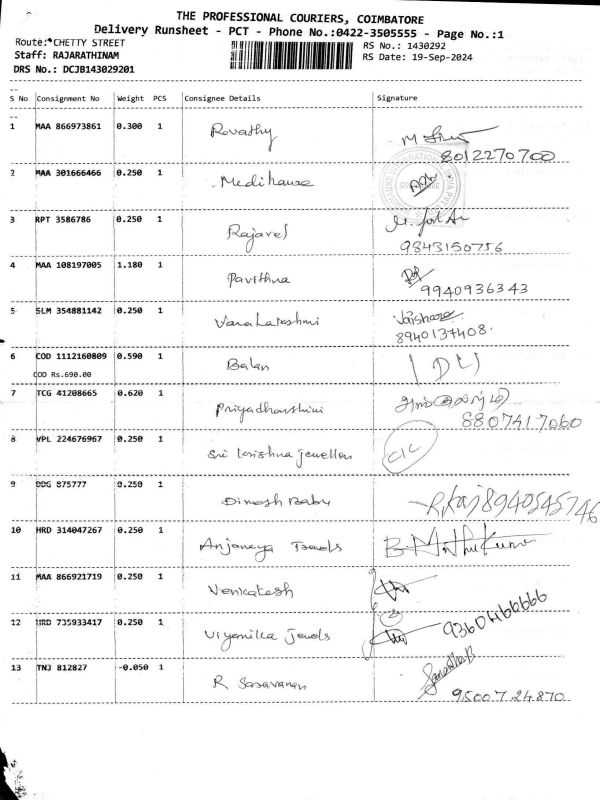 THE PROFESSIONAL COURIERS, COIMBATORE
Delivery Runsheet - PCT - Phone No.:0422-3505555 - Page No.:1
Route: CHETTY STREET
RS No.: 1430292
Staff: RAJARATHINAM
RS Date: 19-Sep-2024
DRS No.: DCJB143029201
S No Consignment No Weight PCS Consignee Details Signature
1 MAA 866973861 0.300 1 Revathy
8012270700
2 MAA 301666466 0.250 1 Medihauze
3 RPT 3586786 0.250 1 Rajavel
9843150756
4 MAA 108197005 1.180 1 Pavithna
9940936343
5 SLM 354881142 0.250 1 Varalakshmi
8940137408.
6 COD 1112160809 0.590 1 Balan
COD Rs.690.00
7 TCG 41208665 0.620 1 Priyadharshini
8807417060
8 VPL 224676967 0.250 1 Sri krishna jewellers
9 DDG 875777 0.250 1 Dinesh Babu 8940545746
10 HRD 314047267 0.250 1 Anjaneya B. Muthukumar
11 MAA 866921719 0.250 1 Venkatesh
12 HRD 735933417 0.250 1 Jewels
13 TNJ 812827 -0.050 1 R Saravanan
9500724870